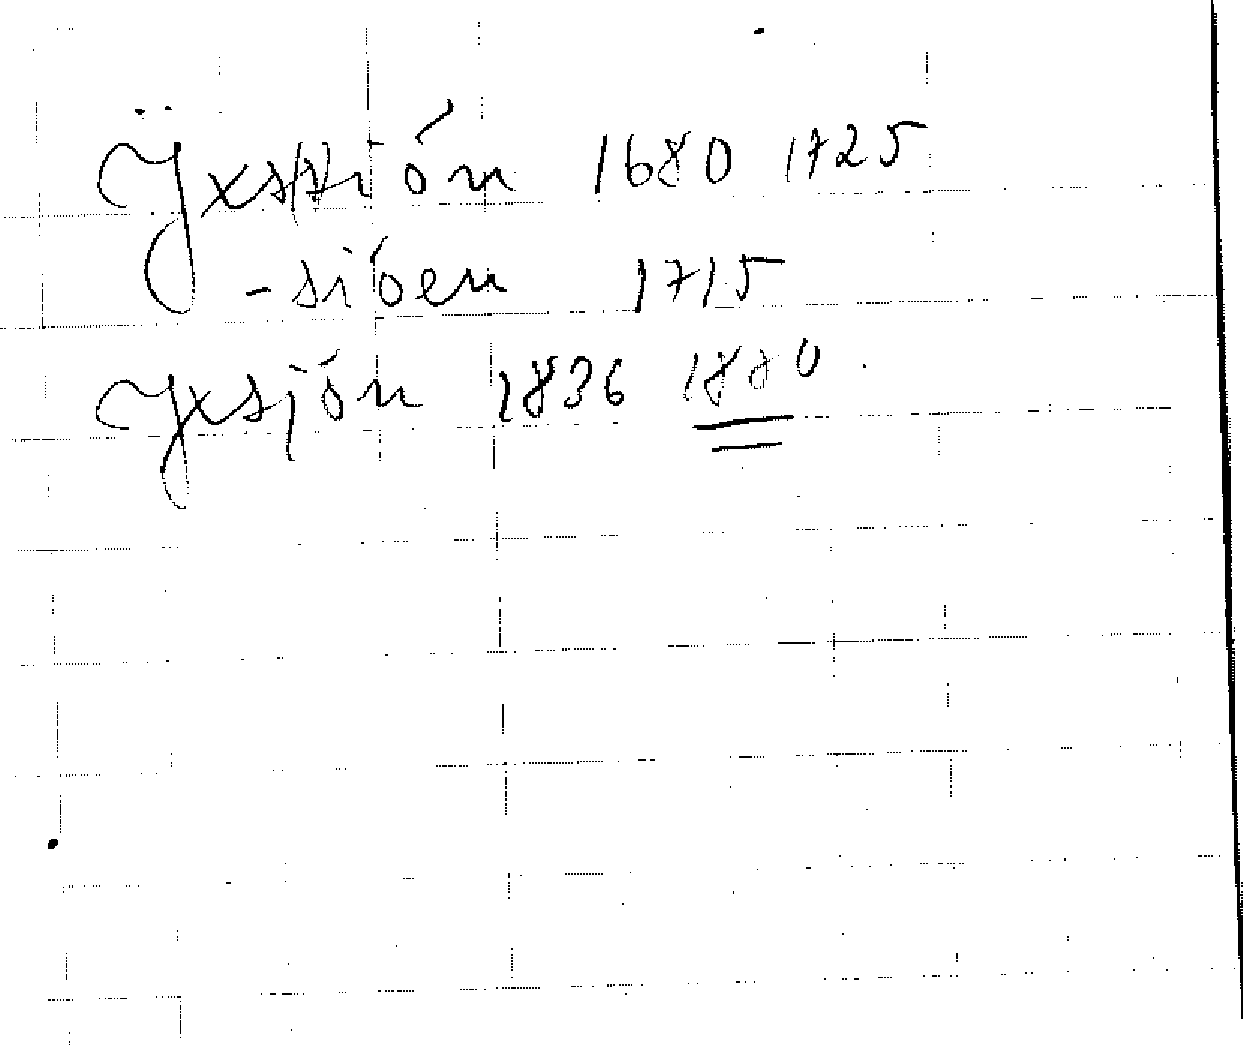 Ÿxsión 1680 1725
-sióen 1715
Yxsjón 1836 1880